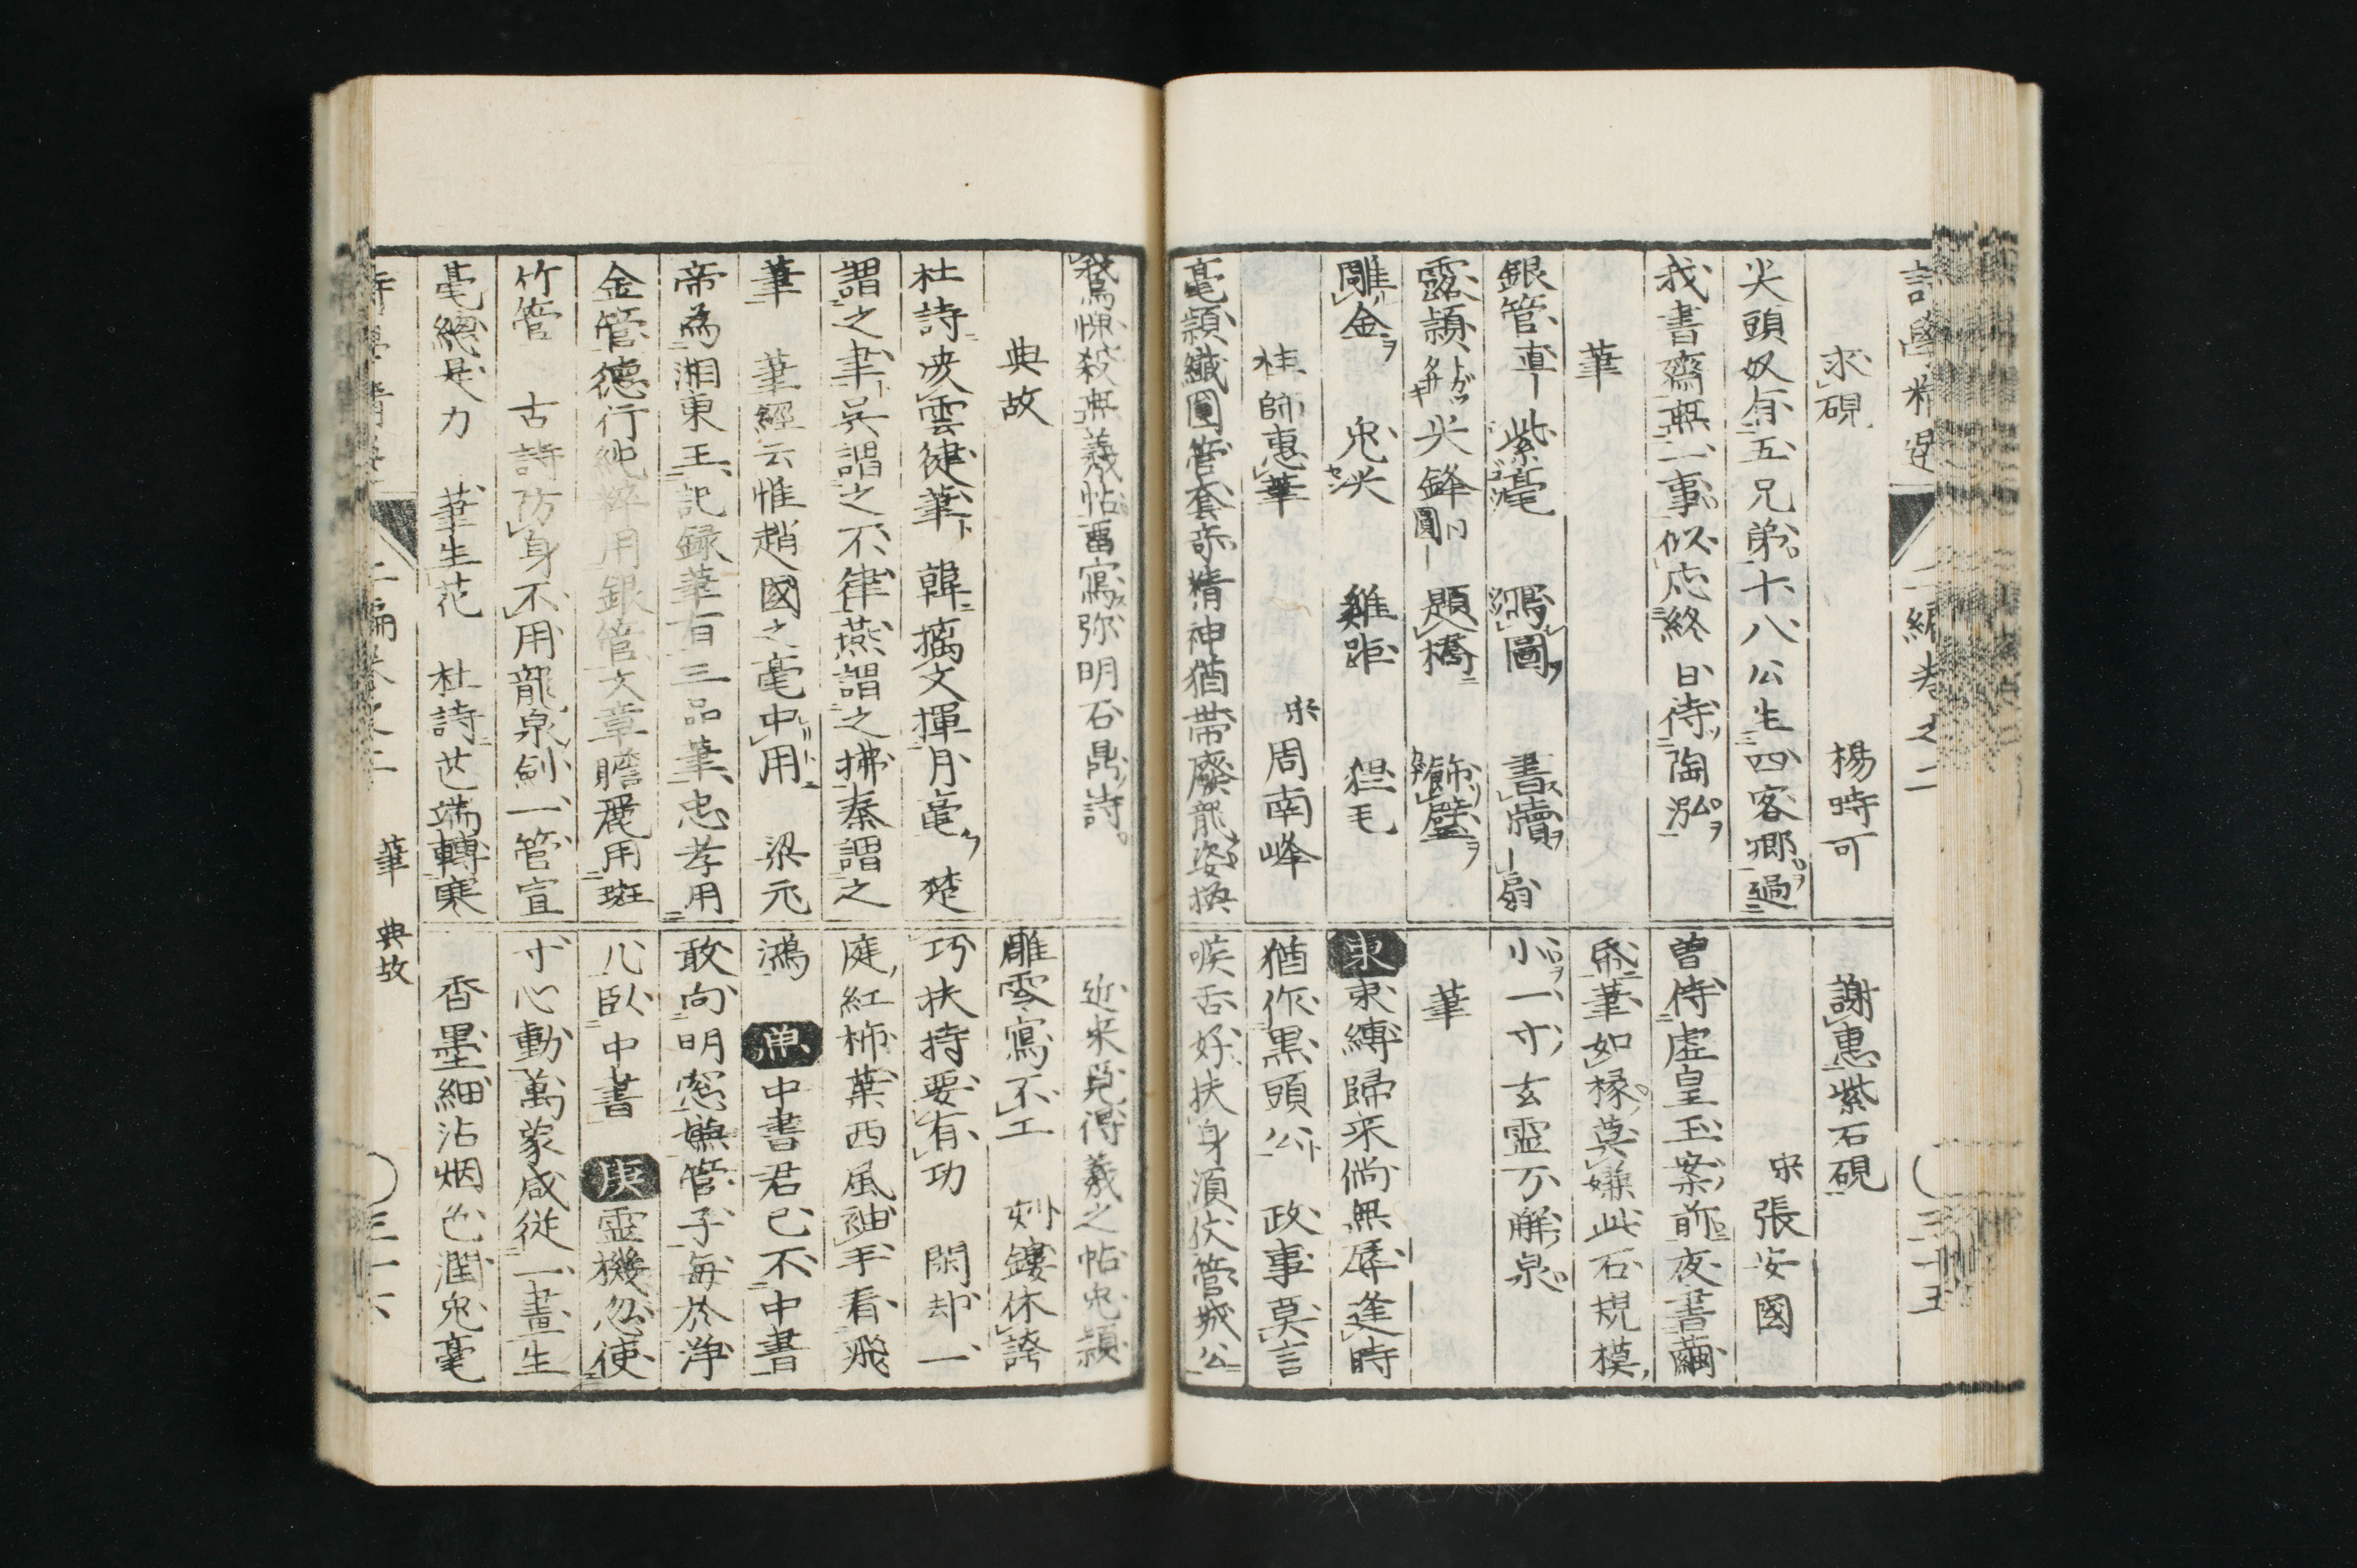 求硯 楊時可
尖頭奴有五兄弟十八公生四客卿過
我書齋無一事似應終日待陶泓
筆
銀管直 紫毫 鴻圖 書牘 扇
露頴 尖鋒 圓 題橋 飾壁
雕金 兎尖 雞距 狸毛
桂師惠筆 宋周南峰
毫頴纎圓管套奇精神猶帶廢龍姿換
謝惠紫石硯
宋張安國
曽侍虚皇玉案前夜書繭
帋筆如椽莫嫌此石規模
小一寸玄靈万斛泉
筆
東 束縛歸來倘無辱逢時
猶作黒頭公 政事莫言
喉舌好扶身湏伏管城公
鵞悞殺無羲帖畱寫弥明石鼎詩
典故
杜詩凌雲健筆 韓摛文揮月毫 楚
謂之聿吳謂之不律燕謂之拂秦謂之
筆 筆經云惟趙國之毫中用 梁元
帝為湘東王記録筆有三品筆忠孝用
金管德行純粹用銀管文章贍麗用斑
竹管 古詩防身不用龍泉劍一管宣
毫總是力 筆生花 杜詩芒端轉寒
近來覓得羲之帖兎頴
雕零寫不工 妙鏤休誇
巧扶持要有功 閑却一
庭紅柿葉西風袖手看飛
鴻 中書君已不中書
敢向明窓嫌管子每於浄
几臥中書 庚 靈機忽使
寸心動萬蒙咸從一畫生
香墨細沾烟色潤兎毫
二編卷之二 筆 典故 三十六